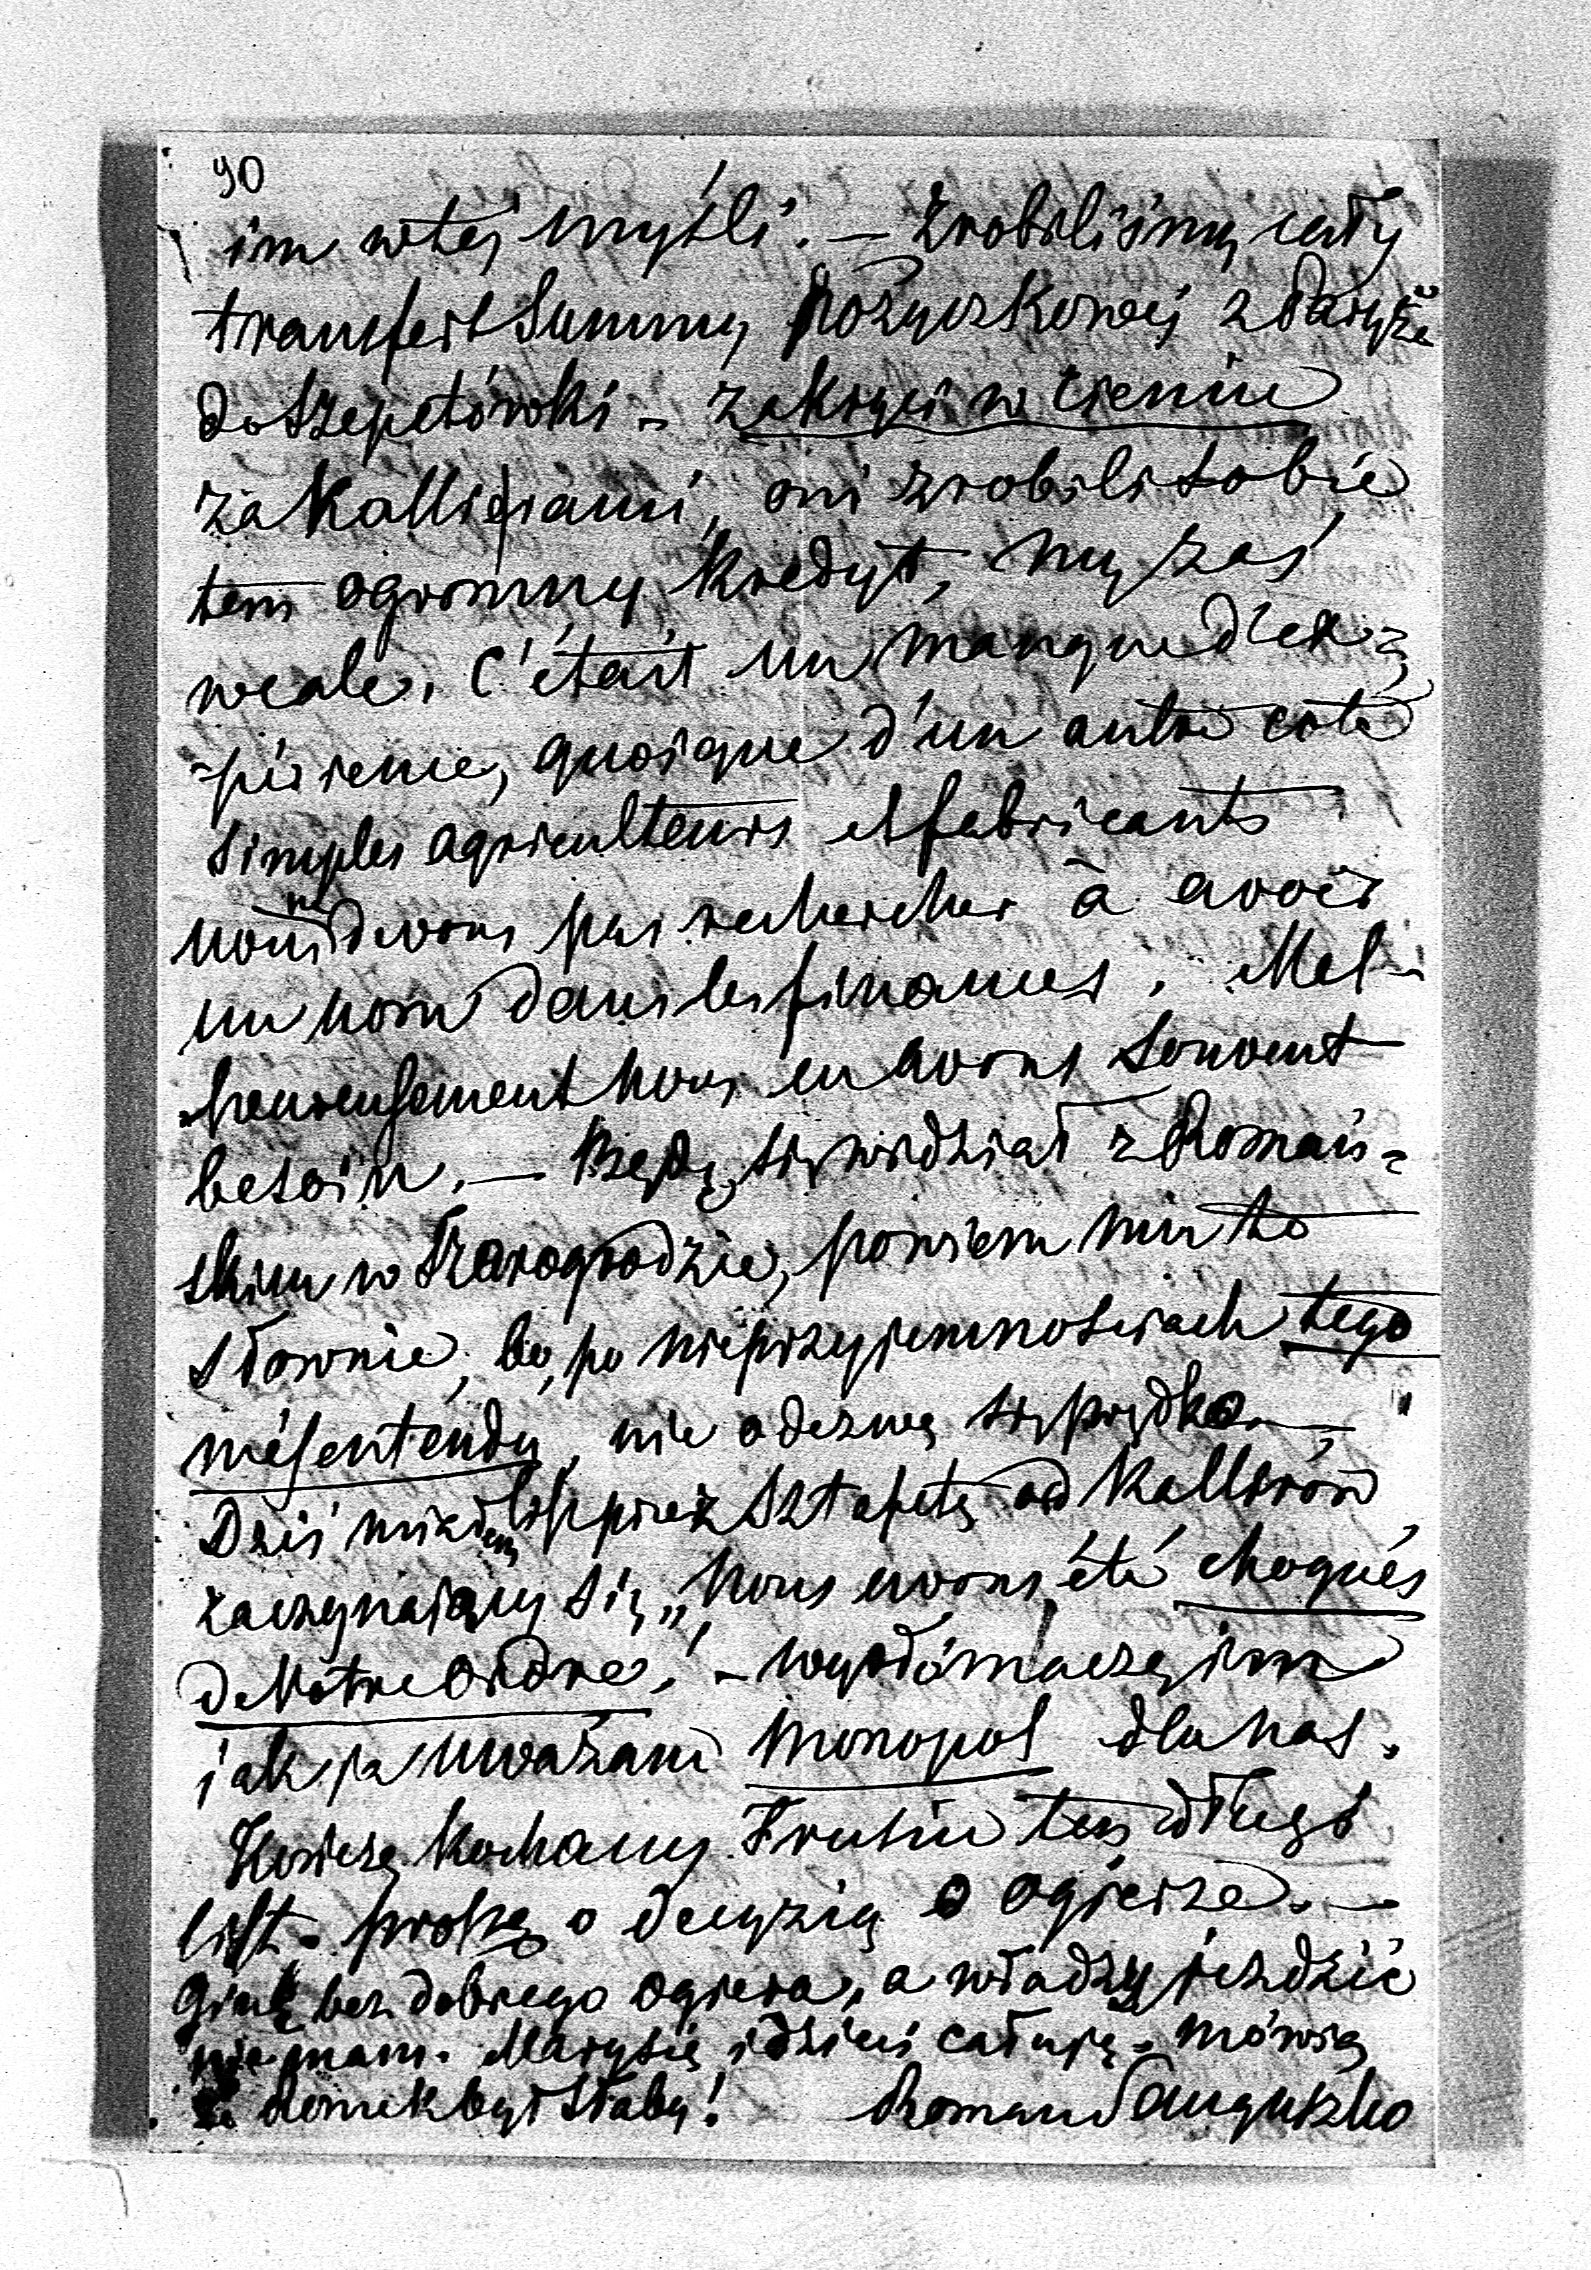 90
im w tej myśli. — Zrobiliśmy cały
transfert Summy pożyczkowej z Paryża
do Szepetówki – zakryci w cieniu
za Kallirami, oni zrobili sobie
tem ogromny kredyt, my zaś
wcale. C'était un manque d'ex=
=périence, quoique d'un autre côté
simples agriculteurs et fabricants
nous ne devons pas rechercher à avoir
un nom dans les finances. Mal-
heureusement nous en avons souvent
besoin. — Będę się widział z Romań=
skim w Szarogrodzie, powiem mu to
słownie, bo, po nieprzyjemnościach tego
mésentendu, nie odezwę się prędko. —
Dziś miałem list przez Sztafetę od Kallirów
zaczynający się „Nous avons été choqués
de Votre ordre," – wytłómaczę im
jak ja uważam monopol dla nas.
Kończę kochany Frusiu ten długi
list – proszę o decyzią o ogierze. —
Ginę bez dobrego ogiera, a władzy jezdzić
nie mam. Marysię i dzieci całuję – mówią
że Romek był słaby! Roman Sanguszko